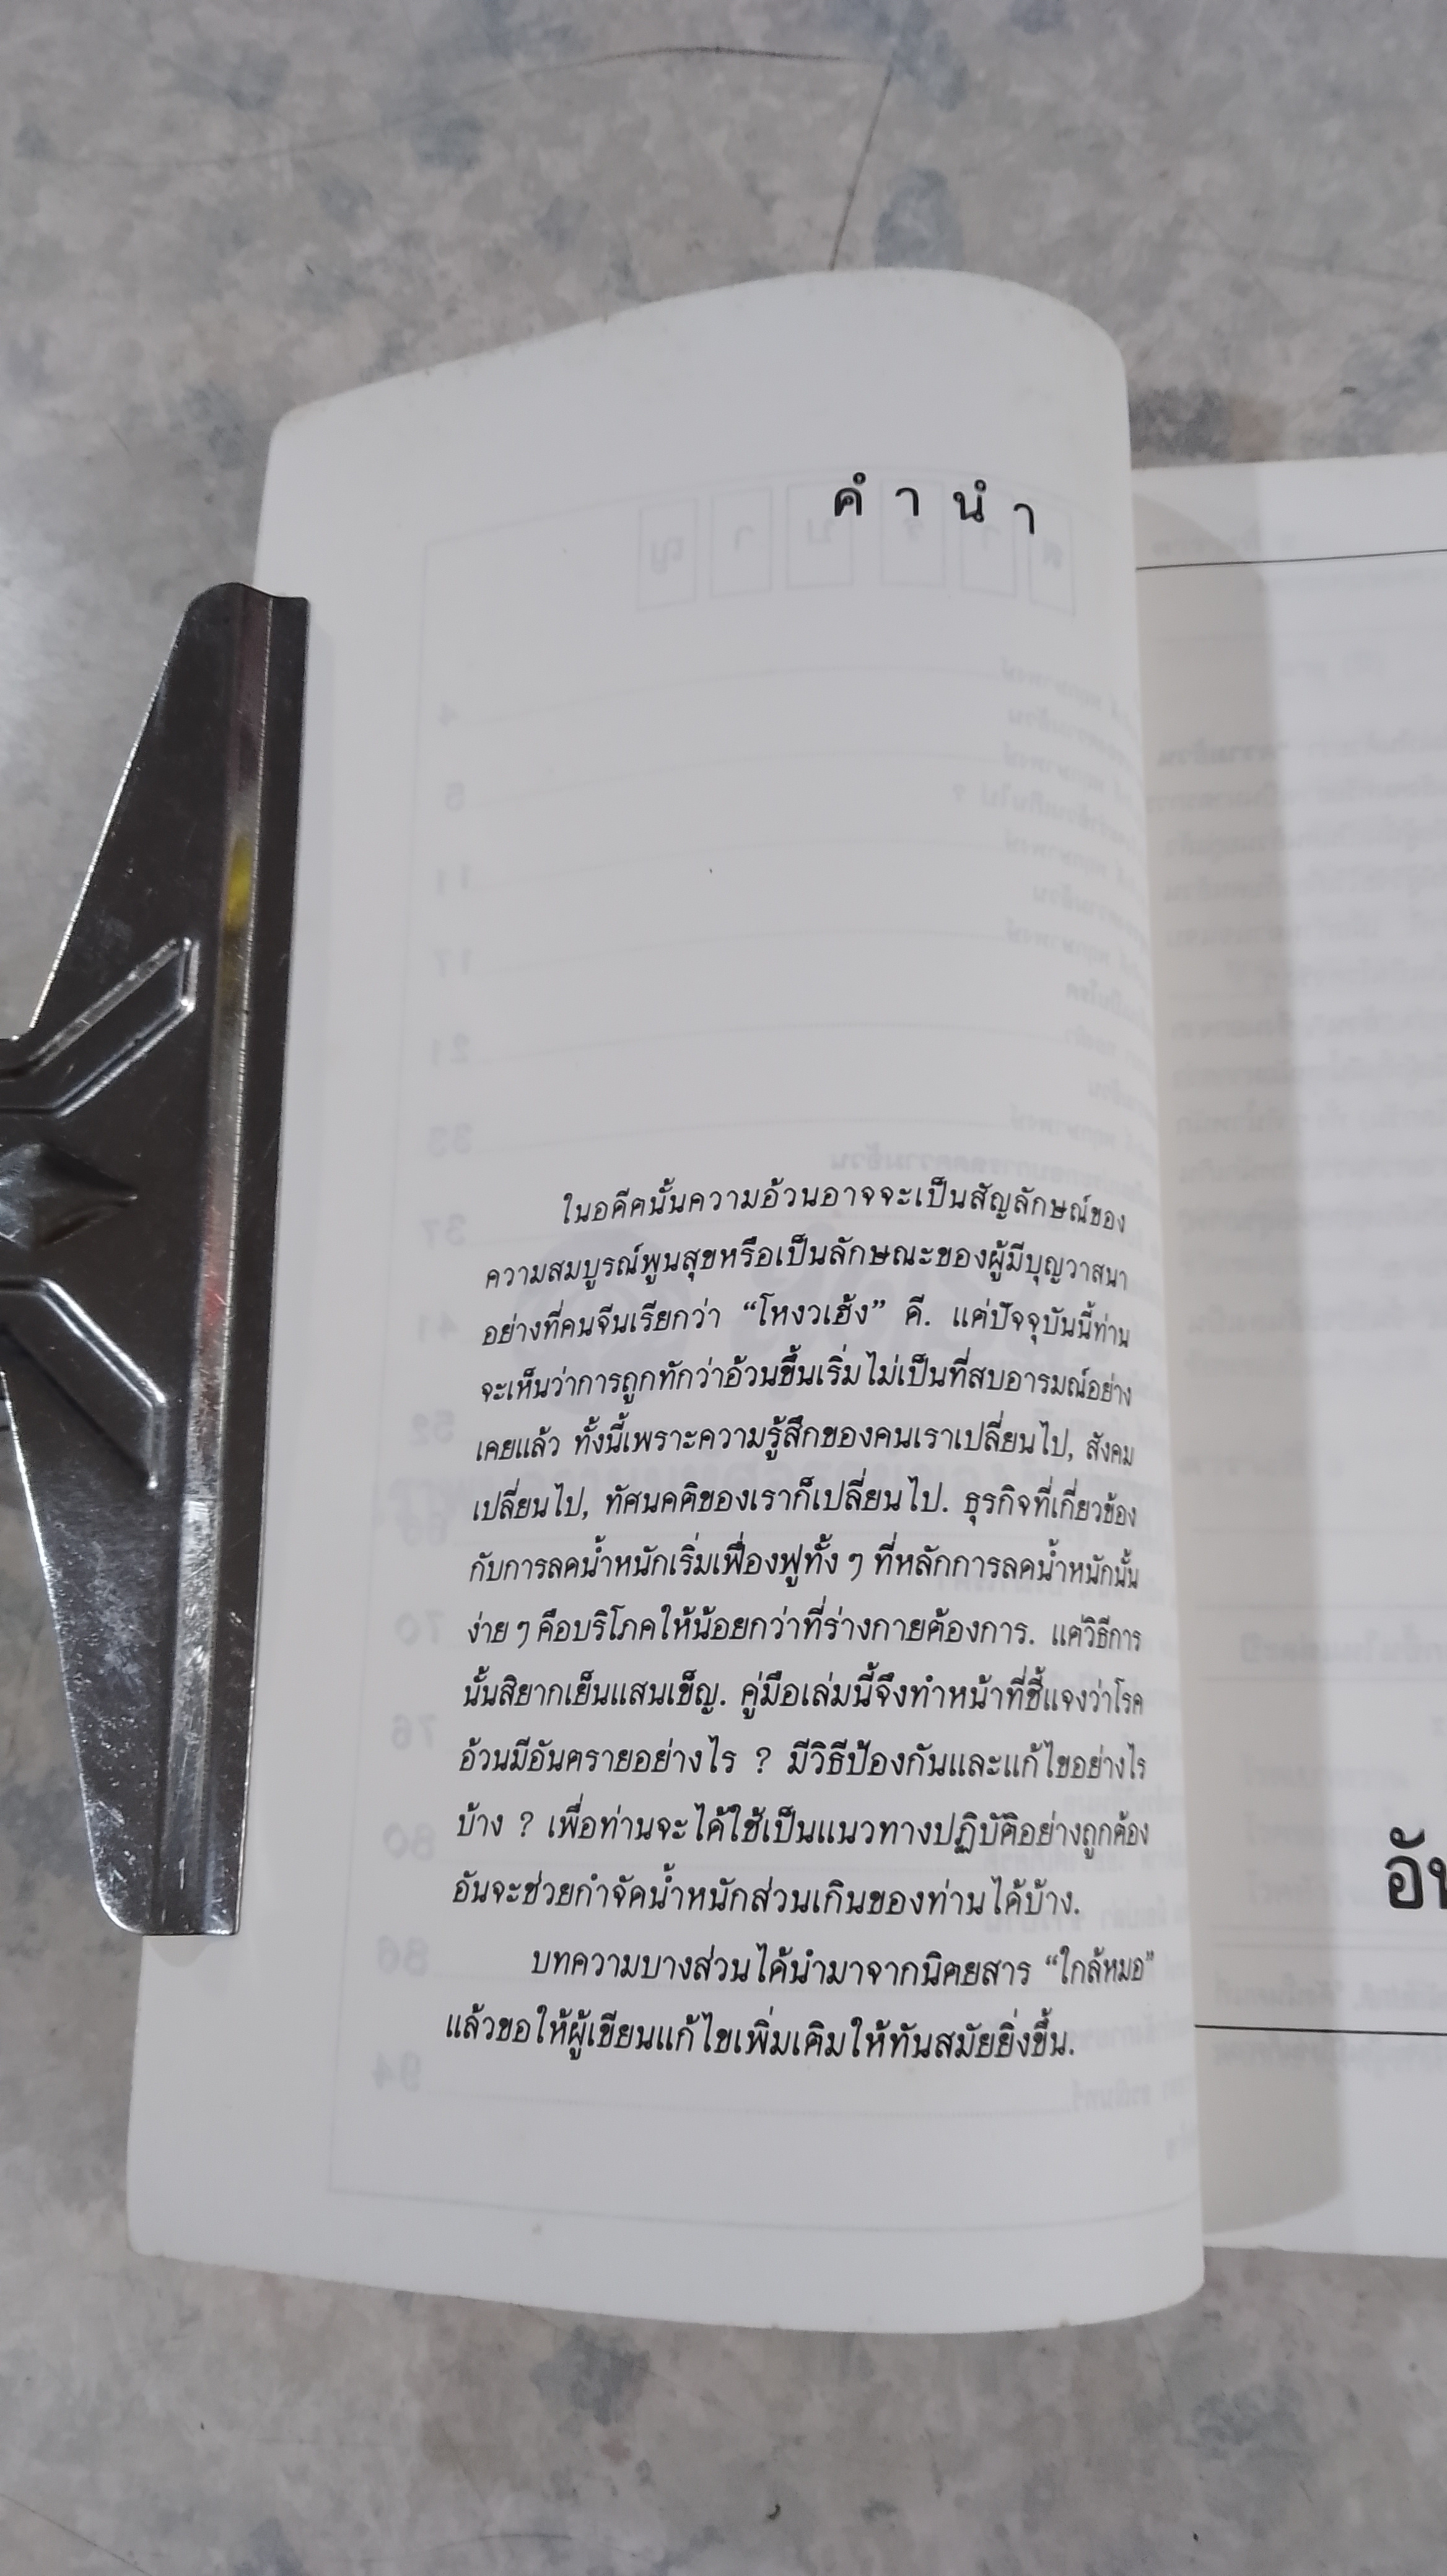 คำนำ
ในอดีตนั้นความอ้วนอาจจะเป็นสัญลักษณ์ของ
ความสมบูรณ์พูนสุขหรือเป็นลักษณะของผู้มีบุญวาสนา
อย่างที่คนจีนเรียกว่า “โหงวเฮ้ง” ดี. แต่ปัจจุบันนี้ท่าน
จะเห็นว่าการถูกทักว่าอ้วนขึ้นเริ่มไม่เป็นที่สบอารมณ์อย่าง
เคยแล้ว ทั้งนี้เพราะความรู้สึกของคนเราเปลี่ยนไป, สังคม
เปลี่ยนไป, ทัศนคติของเราก็เปลี่ยนไป. ธุรกิจที่เกี่ยวข้อง
กับการลดน้ำหนักเริ่มเฟื่องฟูทั้ง ๆ ที่หลักการลดน้ำหนักนั้น
ง่าย ๆ คือบริโภคให้น้อยกว่าที่ร่างกายต้องการ. แต่วิธีการ
นั้นสิยากเย็นแสนเข็ญ. คู่มือเล่มนี้จึงทำหน้าที่ชี้แจงว่าโรค
อ้วนมีอันตรายอย่างไร ? มีวิธีป้องกันและแก้ไขอย่างไร
บ้าง ? เพื่อท่านจะได้ใช้เป็นแนวทางปฏิบัติอย่างถูกต้อง
อันจะช่วยกำจัดน้ำหนักส่วนเกินของท่านได้บ้าง.
บทความบางส่วนได้นำมาจากนิตยสาร “ใกล้หมอ”
แล้วขอให้ผู้เขียนแก้ไขเพิ่มเติมให้ทันสมัยยิ่งขึ้น.